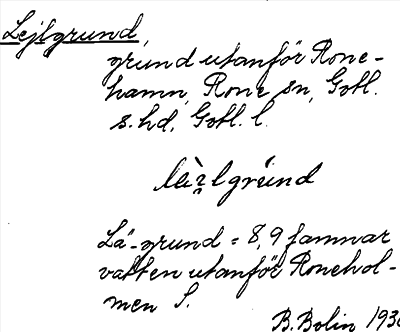 Lejlgrund,
grund utanför Rone-
hamn, Rone sn, Gotl.
s. hd, Gotl. l.
grund
Lä-grund = 8, 9 famnar
vatten utanför Ronehol-
men S.
B. Bolin 193